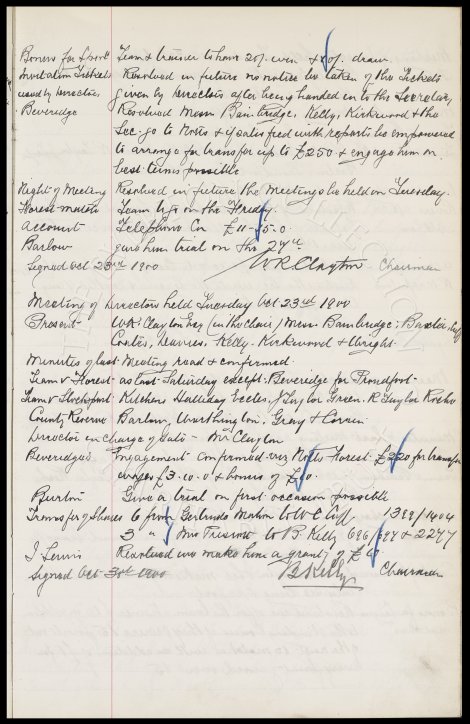 Team & trainer to have 20/- win & 10/- draw.
Invitation Tickets Resolved in future no notice be taken of the Tickets
issued by Directors given by Directors after being handed in to the Secretary
Beveridge Resolved Messrs Bainbridge, Kelly, Kirkwood & the
Sec. go to Notts & if satisfied with reports be empowered
to arrange for transfer up to £250 & engage him on
best terms possible
Night of Meeting Resolved in future the Meetings be held on Tuesday.
Forest match Team on the Friday.
Account Telephone Co £11-15.0
Barlow give him trial on the 27th.
Signed Oct 23rd 1900 W R Clayton Chairman
Meeting of Directors held Tuesday Oct 23rd 1900
Present W R Clayton Esq (in the Chair) Messrs Bainbridge, Baxter,
Coates, Kelly, Kirkwood & Wright.
Minutes of last Meeting read & confirmed.
Team v Forest as last Saturday except Beveridge for Proudfoot.
Team v Stockport Kitchen Halliday Eccles, J Taylor Green. R Taylor Roche
County Reserve Barlow, Worthington, Gray & Corrin
Director in charge of Gate - Mr Clayton
Beveridge's Engagement confirmed viz Notts Forest £220 for transfer
wages £3.10.0 & bonus of £10.
Burton Give a trial on first occasion possible
Transfer of Shares 6 from Gertrude Mahon to W C Cuff 1399/1404
3 " Mrs to B. Kelly 696/697 & 2247
J Lewis Resolved we make him a grant of
Signed Oct 30th 1900 B Kelly Chairman